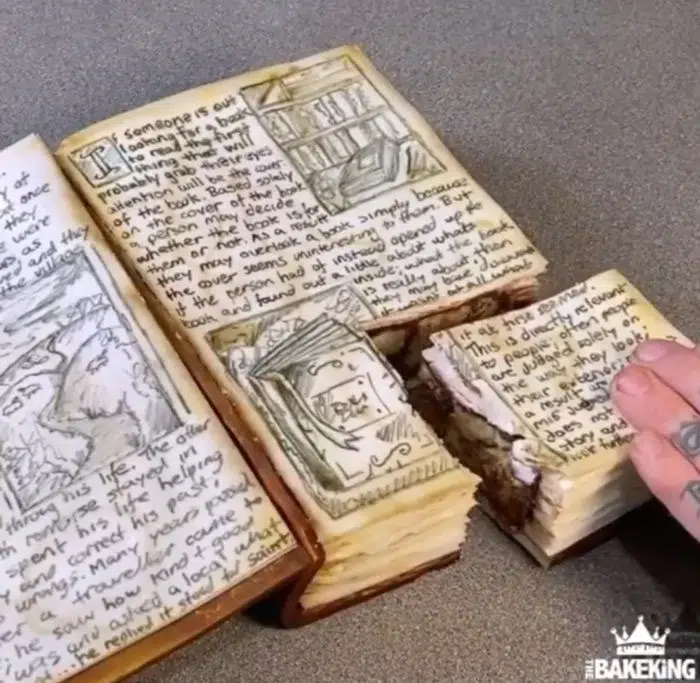 at once
they
were
as
and they
the village
through his life. The other
stayed in
spent his life helping
and correct his past
wrongs. Many years passed
a traveller came to
he saw how kind + good
was and asked a local what
he replied it stood for saint
If someone is out
looking for a book
to read the first
thing that will
probably grab their eyes
attention will be the cover
of the book. Based solely
on the cover of the book
a person may decide
whether the book is for
them or not. As a result
they may overlook a book simply because
the cover seems uninteresting to them. But
if the person had of instead opened up the
book and found out a little about whats
inside; what the book
is really about, then
they may have
it at seemed.
This is directly relevant
to people; often people
are judged solely on
the way they look
their
a result
does not
story and
THE BAKEKING